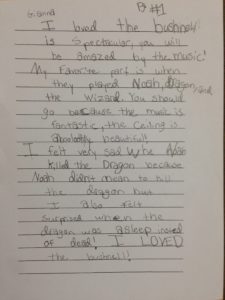 Gianna
P #1
I loved the bushnell
is Spectacular, you will
be amazed by the music!
My Favorite part is when
they played Noah, Dragon, and
the Wizard. You should
go because the music is
fantastic, the ceiling is
beautiful
I felt very sad whe Noah
killed the Dragon because
Noah didn't mean to kill
the dragon but
I also felt
surprised when the
dragon was asleep instead
of dead! I LOVED
the bushnell!